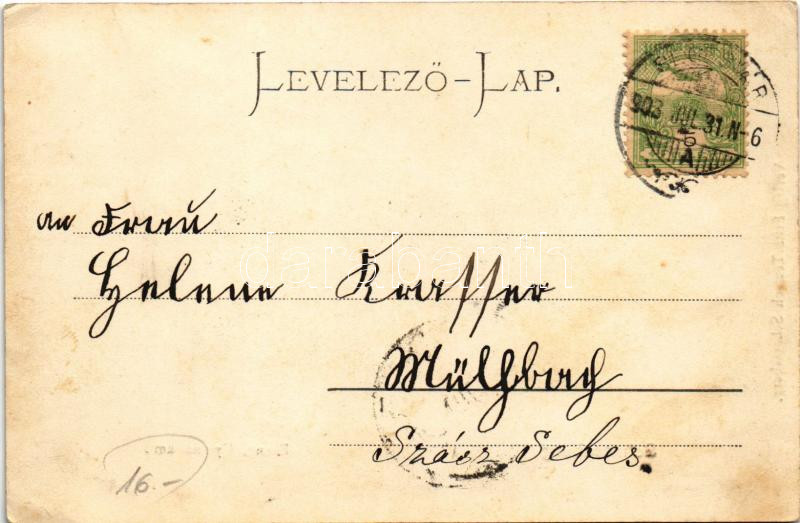 LEVELEZŐ-LAP.
903 JUL. 31. N-6
A
an Frau
Helene Krasser
Mülhbach
Szász Sebes
16.-
darabanth